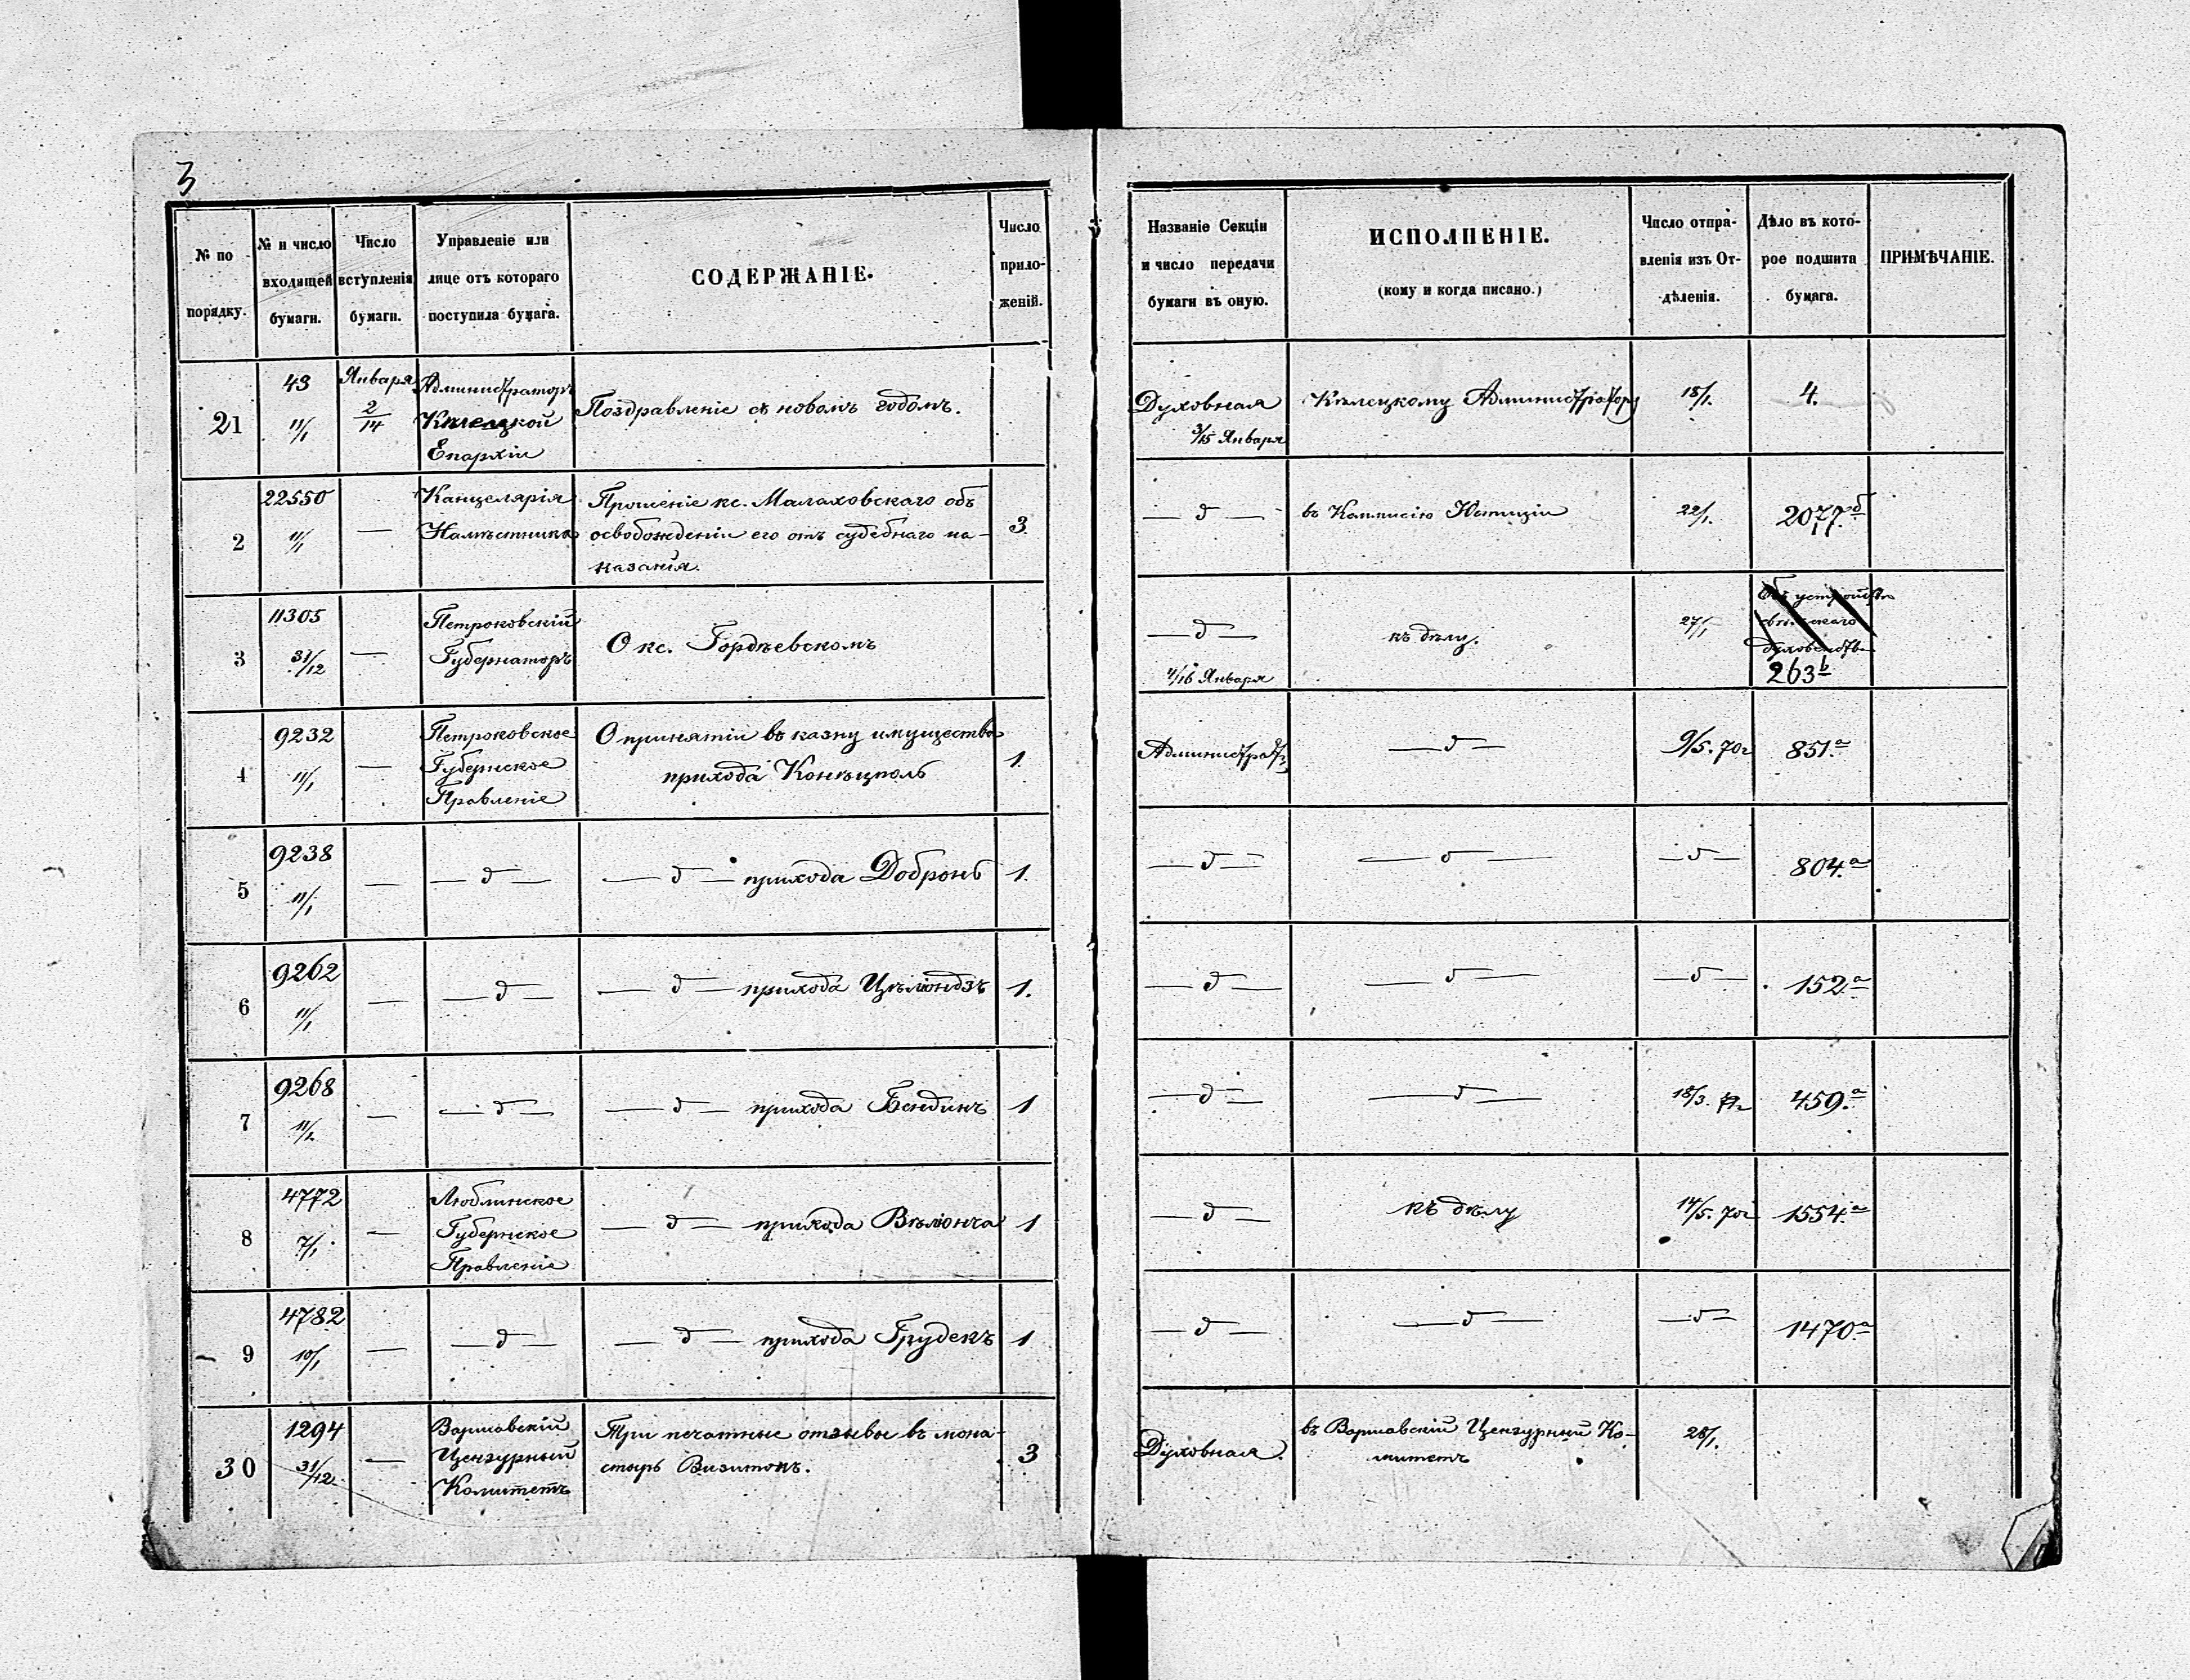 3
№ по порядку.
№ и число входящей бумаги.
Число вступленія бумаги.
Управленіе или лице отъ котораго поступила бумага.
СОДЕРЖАНІЕ.
Число прило-
женій.
Названіе Секціи и число передачи бумаги въ оную.
ИСПОЛНЕНІЕ.
(кому и когда писано.)
Число отпра-
вленія изъ От-
дѣленія.
Дѣло въ кото-
рое подшита бумага.
ПРИМѢЧАНІЕ.
21
43
11/1
Января
2/14
Администраторъ
Кѣлецкой
Епархіи
Поздравленіе съ новымъ годомъ.
Духовная
3/15 Января
Кѣлецкому Администратору
18/1.
4.
2
22550
11/1
—
Канцелярія
Намѣстника
Прошеніе кс. Малаховскаго объ
освобожденіи его отъ судебнаго на-
казанія.
3.
— д —
въ Коммисію Юстиціи
22/1.
2077.б
3
11305
31/12
—
Петроковскій
Губернаторъ
О кс. Гордѣевскомъ
— д —
4/16 Января
къ дѣлу.
27/1
Объ устройствѣ
духовенства
263b
4
9232
11/1
—
Петроковское
Губернское
Правленіе
О принятіи въ казну имущества
прихода Конѣцполь
1.
Администрат.
— д —
9/5. 70г
851.а
5
9238
11/1
—
— д —
— д — прихода Добронь
1.
— д —
— д —
— д —
804.а
6
9262
11/1
—
— д —
— д — прихода Цѣлондзъ
1.
— д —
— д —
— д —
152.а
7
9268
11/1
—
— д —
— д — прихода Бендинъ
1
— д —
— д —
18/3.
459.а
8
4772
7/1.
—
Люблинское
Губернское
Правленіе
— д — прихода Вѣлонча
1
— д —
къ дѣлу
14/5. 70г
1554.а
9
4782
10/1
—
— д —
— д — прихода Грудекъ
1
— д —
— д —
— д —
1470.а
30
1294
31/12.
—
Варшавскій
Цензурный
Комитетъ
Три печатные отзывы въ мона-
стырь Визитокъ.
3
Духовная.
въ Варшавскій Цензурный Ко-
митетъ
28/1.